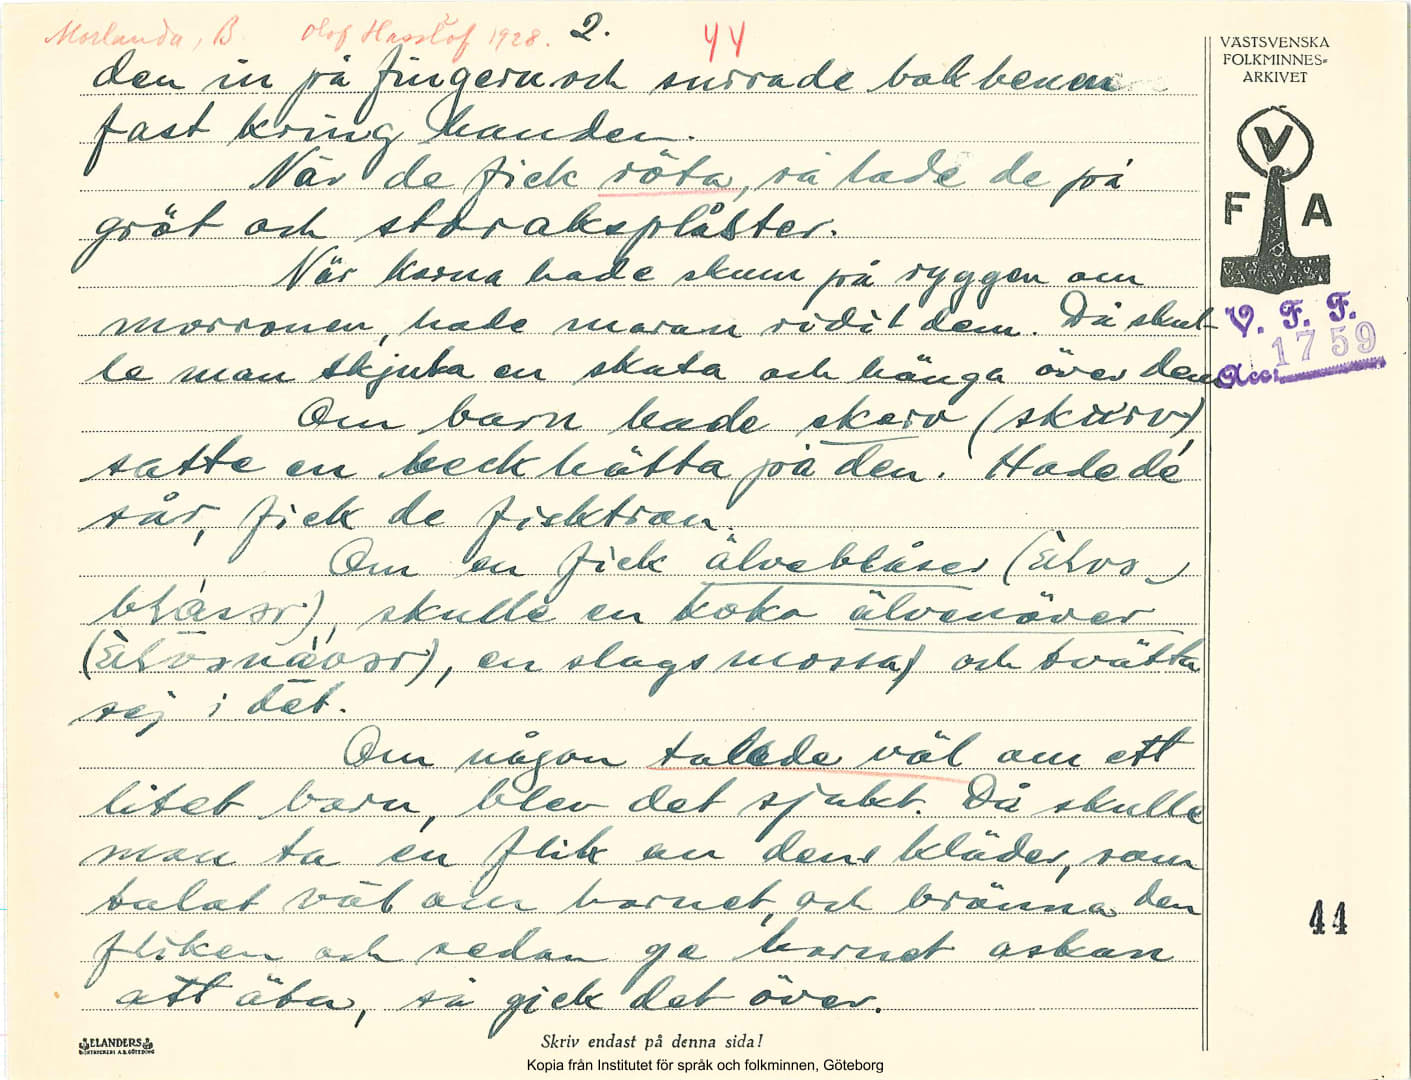 Morlanda, B. Olof Hasslöf 1928. 2. 44
den in på fingern och surrade bakbenen
fast kring handen.
När de fick röta, så lade de på
gröt och storaksplåster.
När korna hade skum på ryggen om
morronen, hade maran ridit dem. Då skul-
le man skjuta en skata och hänga över dem.
Om barn hade skarv (skürv)
satte en beckhätta på den. Hade de
sår, fick de fisktran.
Om en fick älveblåser (
), skulle en koka älvenäver
(), en slags mossa) och tvätta
sej i det.
Om någon talade väl om ett
litet barn, blev det sjukt. Då skulle
man ta en flik av dens kläder, som
talat väl om barnet, och bränna den
fliken och sedan ge barnet askan
att äta, så gick det över.
VÄSTSVENSKA
FOLKMINNES-
ARKIVET
V
F A
V. F. F.
Acc. 1759
44
ELANDERS
BOKTRYCKERI A.B. GÖTEBORG
Skriv endast på denna sida!
Kopia från Institutet för språk och folkminnen, Göteborg